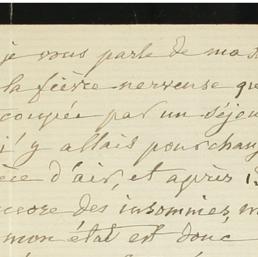 je vous parle de ma
la fièvre nerveuse que
coupée par un séjou
j'y allais pour chang
d'air, et après 1
encore des insomnies,
mon état est donc